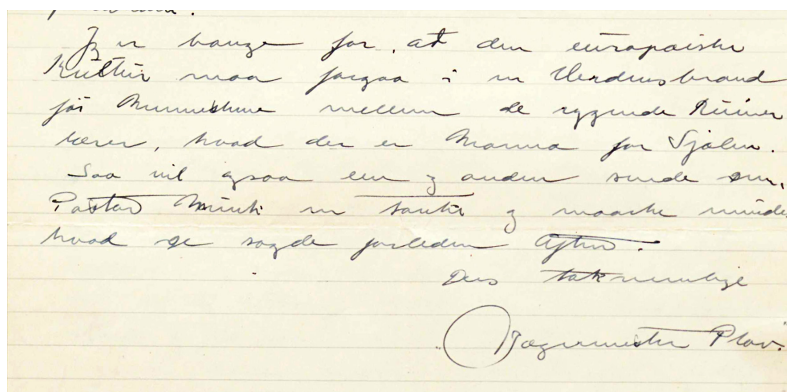 Jeg er bange for, at den europæiske
Kultur maa forgaa i en Verdensbrand
før Menneskene mellem de rygende Ruiner
lærer, hvad der er Manna for Sjælen.
Saa vil ogsaa een og anden sende Hr.
Pastor Munk en Tanke og maaske mindes,
hvad De sagde forleden Aften.
Deres taknemlige
Jægermester Plov.